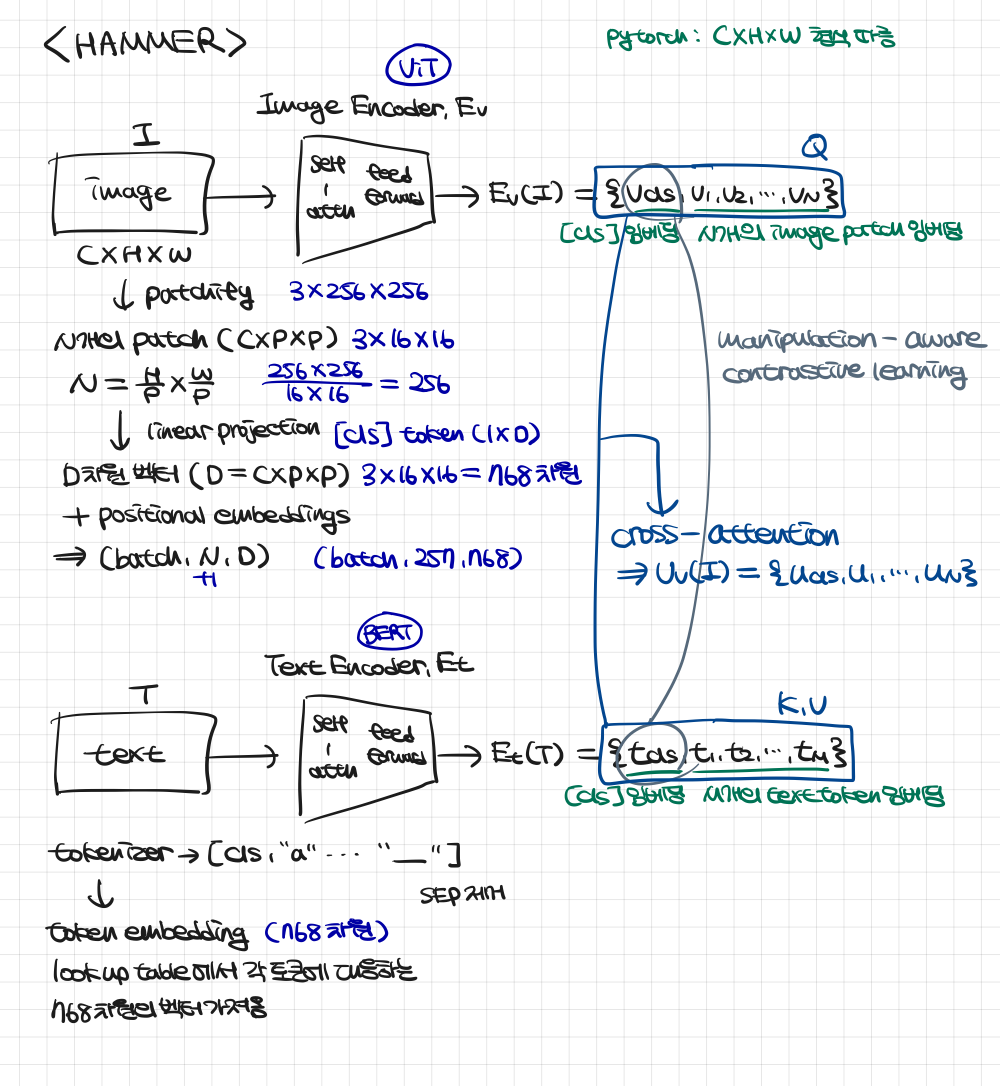 <HAMMER>
pytorch : C×H×W 형식 따름
ViT
Image Encoder, Ev
I
image
C×H×W
self-attn
feed forward
Ev(I) = {Vcls, V1, V2, ..., VN}
Q
[cls] 임베딩 N개의 image patch 임베딩
↓ patchify 3×256×256
N개의 patch (C×P×P) 3×16×16
N = H/P × W/P 256×256/16×16 = 256
↓ linear projection [cls] token (1×D)
D차원 벡터 (D = C×P×P) 3×16×16 = 768 차원
+ positional embeddings
⇒ (batch, N, D) (batch, 257, 768)
+1
manipulation - aware
contrastive learning
cross - attention
⇒ Uv(I) = {Ucls, U1, ..., UN}
BERT
Text Encoder, Et
T
text
self-attn
feed forward
Et(T) = {tcls, t1, t2, ..., tM}
K, V
[cls] 임베딩 text token 임베딩
tokenizer → [cls, "a" ... "__"]
SEP 제거
↓
token embedding (768 차원)
look up table에서 각 토큰에 대응하는
768차원의 벡터 가져옴